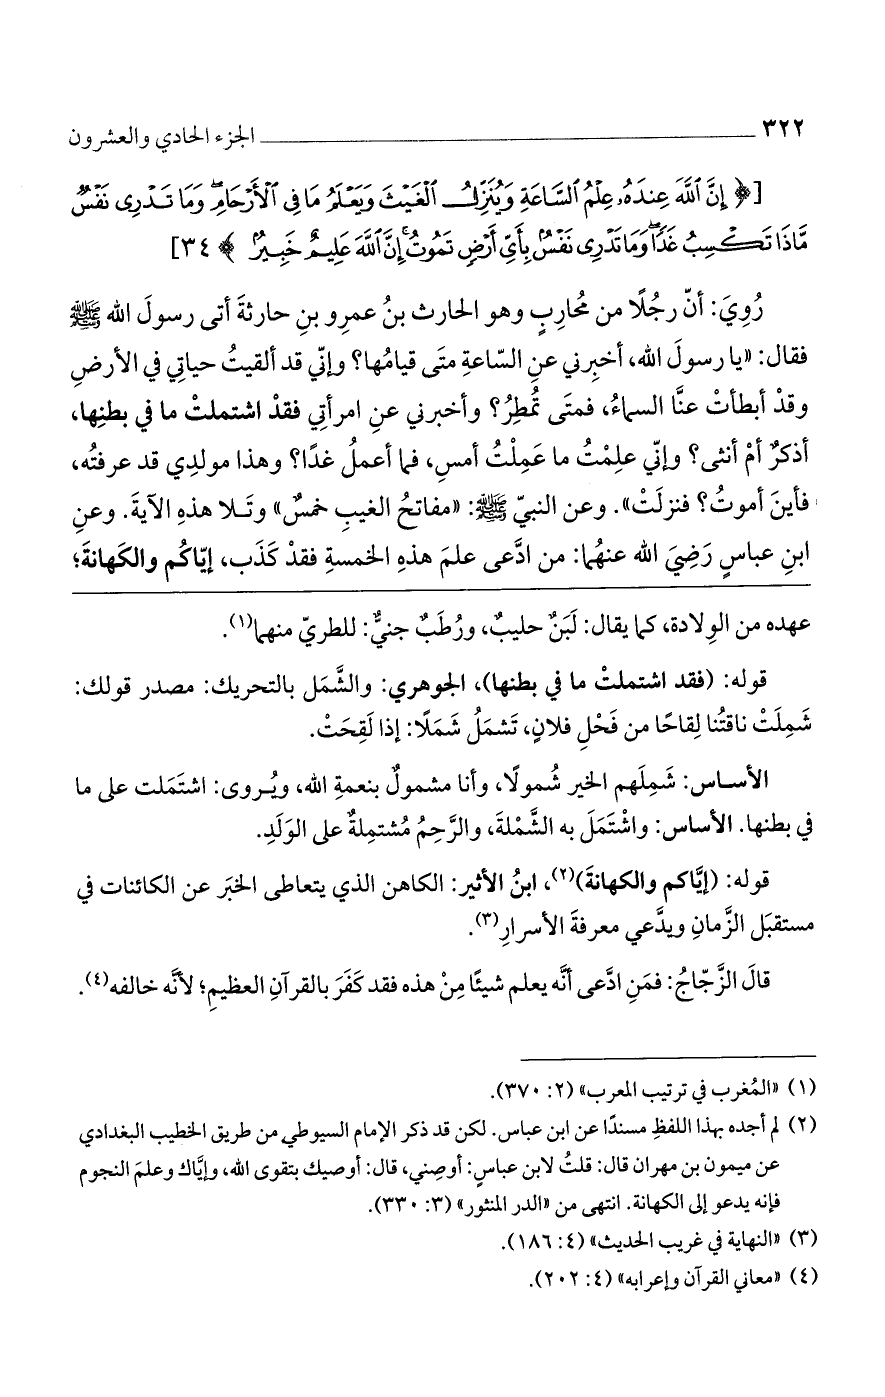 ٣٢٢ الجزء الحادي والعشرون
[﴿ إِنَّ ٱللَّهَ عِندَهُۥ عِلْمُ ٱلسَّاعَةِ وَيُنَزِّلُ ٱلْغَيْثَ وَيَعْلَمُ مَا فِى ٱلْأَرْحَامِ ۖ وَمَا تَدْرِى نَفْسٌ
مَّاذَا تَكْسِبُ غَدًا ۖ وَمَا تَدْرِى نَفْسٌۢ بِأَىِّ أَرْضٍ تَمُوتُ ۚ إِنَّ ٱللَّهَ عَلِيمٌ خَبِيرٌۢ ﴾ ٣٤]
رُوِيَ: أنّ رجُلًا من مُحارِبٍ وهو الحارث بنُ عمرِو بنِ حارثةَ أتى رسولَ الله ﷺ
فقال: «يا رسولَ الله، أخبِرني عنِ السّاعةِ متَى قيامُها؟ وإنّي قد ألقيتُ حياتِي في الأرضِ
وقدْ أبطأتْ عنَّا السماءُ، فمتَى تُمطِرُ؟ وأخبرني عنِ امرأتِي فقدْ اشتملتْ ما في بطنِها،
أذكرٌ أمْ أنثى؟ وإنّي علِمْتُ ما عَمِلْتُ أمسِ، فما أعملُ غدًا؟ وهذا مولدِي قد عرفتُه،
فأينَ أموتُ؟ فنزلَتْ». وعن النبيّ ﷺ: «مفاتحُ الغيبِ خمسٌ» وتَلا هذهِ الآيةَ. وعنِ
ابنِ عباسٍ رَضِيَ الله عنهُما: من ادَّعى علمَ هذهِ الخمسةِ فقدْ كَذَب، إيّاكُم والكَهانةَ؛
عهده من الوِلادة، كما يقال: لَبَنٌ حليبٌ، ورُطَبٌ جنيٌّ: للطريّ منهما(١).
قوله: (فقد اشتملتْ ما في بطنها)، الجوهري: والشَّمَل بالتحريك: مصدر قولك:
شَمِلَتْ ناقتُنا لِقاحًا من فَحْلِ فلانٍ، تَشمَلُ شَمَلًا: إذا لَقِحَتْ.
الأساس: شَمِلَهم الخير شُمولًا، وأنا مشمولٌ بنعمةِ الله، ويُروى: اشتَمَلت على ما
في بطنها. الأساس: واشْتَمَلَ به الشَّمْلةَ، والرَّحِمُ مُشتمِلةٌ على الوَلَدِ.
قوله: (إيَّاكم والكهانةَ)(٢)، ابنُ الأثير: الكاهن الذي يتعاطى الخبَر عن الكائنات في
مستقبَل الزَّمانِ ويدَّعي معرفةَ الأسرارِ(٣).
قالَ الزَّجّاجُ: فمَنِ ادَّعى أنَّه يعلم شيئًا مِنْ هذه فقد كَفَرَ بالقرآنِ العظيمِ؛ لأنَّه خالفه(٤).
(١) «المُغرب في ترتيب المعرب» (٢: ٣٧٠).
(٢) لم أجده بهذا اللفظِ مسندًا عن ابن عباس. لكن قد ذكر الإمام السيوطي من طريق الخطيب البغدادي
عن ميمون بن مهران قال: قلتُ لابن عباسٍ: أوصِني، قال: أوصيك بتقوى الله، وإيَّاك وعلمَ النجوم
فإنه يدعو إلى الكهانة. انتهى من «الدر المنثور» (٣: ٣٣٠).
(٣) «النهاية في غريب الحديث» (٤: ١٨٦).
(٤) «معاني القرآن وإعرابه» (٤: ٢٠٢).